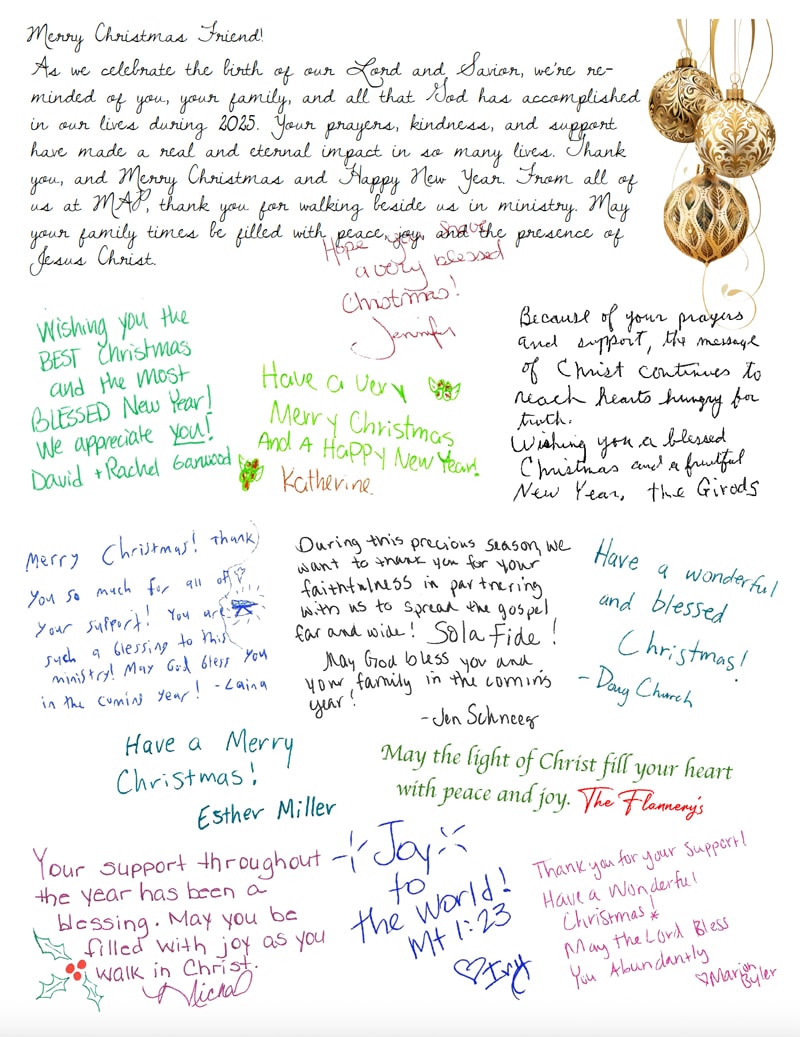 Merry Christmas Friend!
As we celebrate the birth of our Lord and Savior, we're re-
minded of you, your family, and all that God has accomplished
in our lives during 2025. Your prayers, kindness, and support
have made a real and eternal impact in so many lives. Thank
you, and Merry Christmas and Happy New Year. From all of
us at MAP, thank you for walking beside us in ministry. May
your family times be filled with peace, joy, and the presence of
Jesus Christ.
Hope you have
a very blessed
Christmas!
Jennifer
Wishing you the
BEST Christmas
and the most
BLESSED New Year!
We appreciate you!
David + Rachel Garwood
Have a very
Merry Christmas
And A Happy New Year!
Katherine
Because of your prayers
and support, the message
of Christ continues to
reach hearts hungry for
truth.
Wishing you a blessed
Christmas and a fruitful
New Year, the Girods
Merry Christmas! Thank
you so much for all of
your support! You are
such a blessing to this
ministry! May God bless you
in the coming year! -Laina
During this precious season, we
want to thank you for your
faithfulness in partnering
with us to spread the gospel
far and wide! Sola Fide!
May God bless you and
your family in the coming
year!
-Jen Schneeg
Have a wonderful
and blessed
Christmas!
-Doug Church
Have a Merry
Christmas!
Esther Miller
May the light of Christ fill your heart
with peace and joy. The Flannery's
Your support throughout
the year has been a
blessing. May you be
filled with joy as you
walk in Christ.
Joy
to
the World!
Mt 1:23
Thank you for your support!
Have a Wonderful
Christmas!
May the Lord Bless
You Abundantly
Marian
Byler